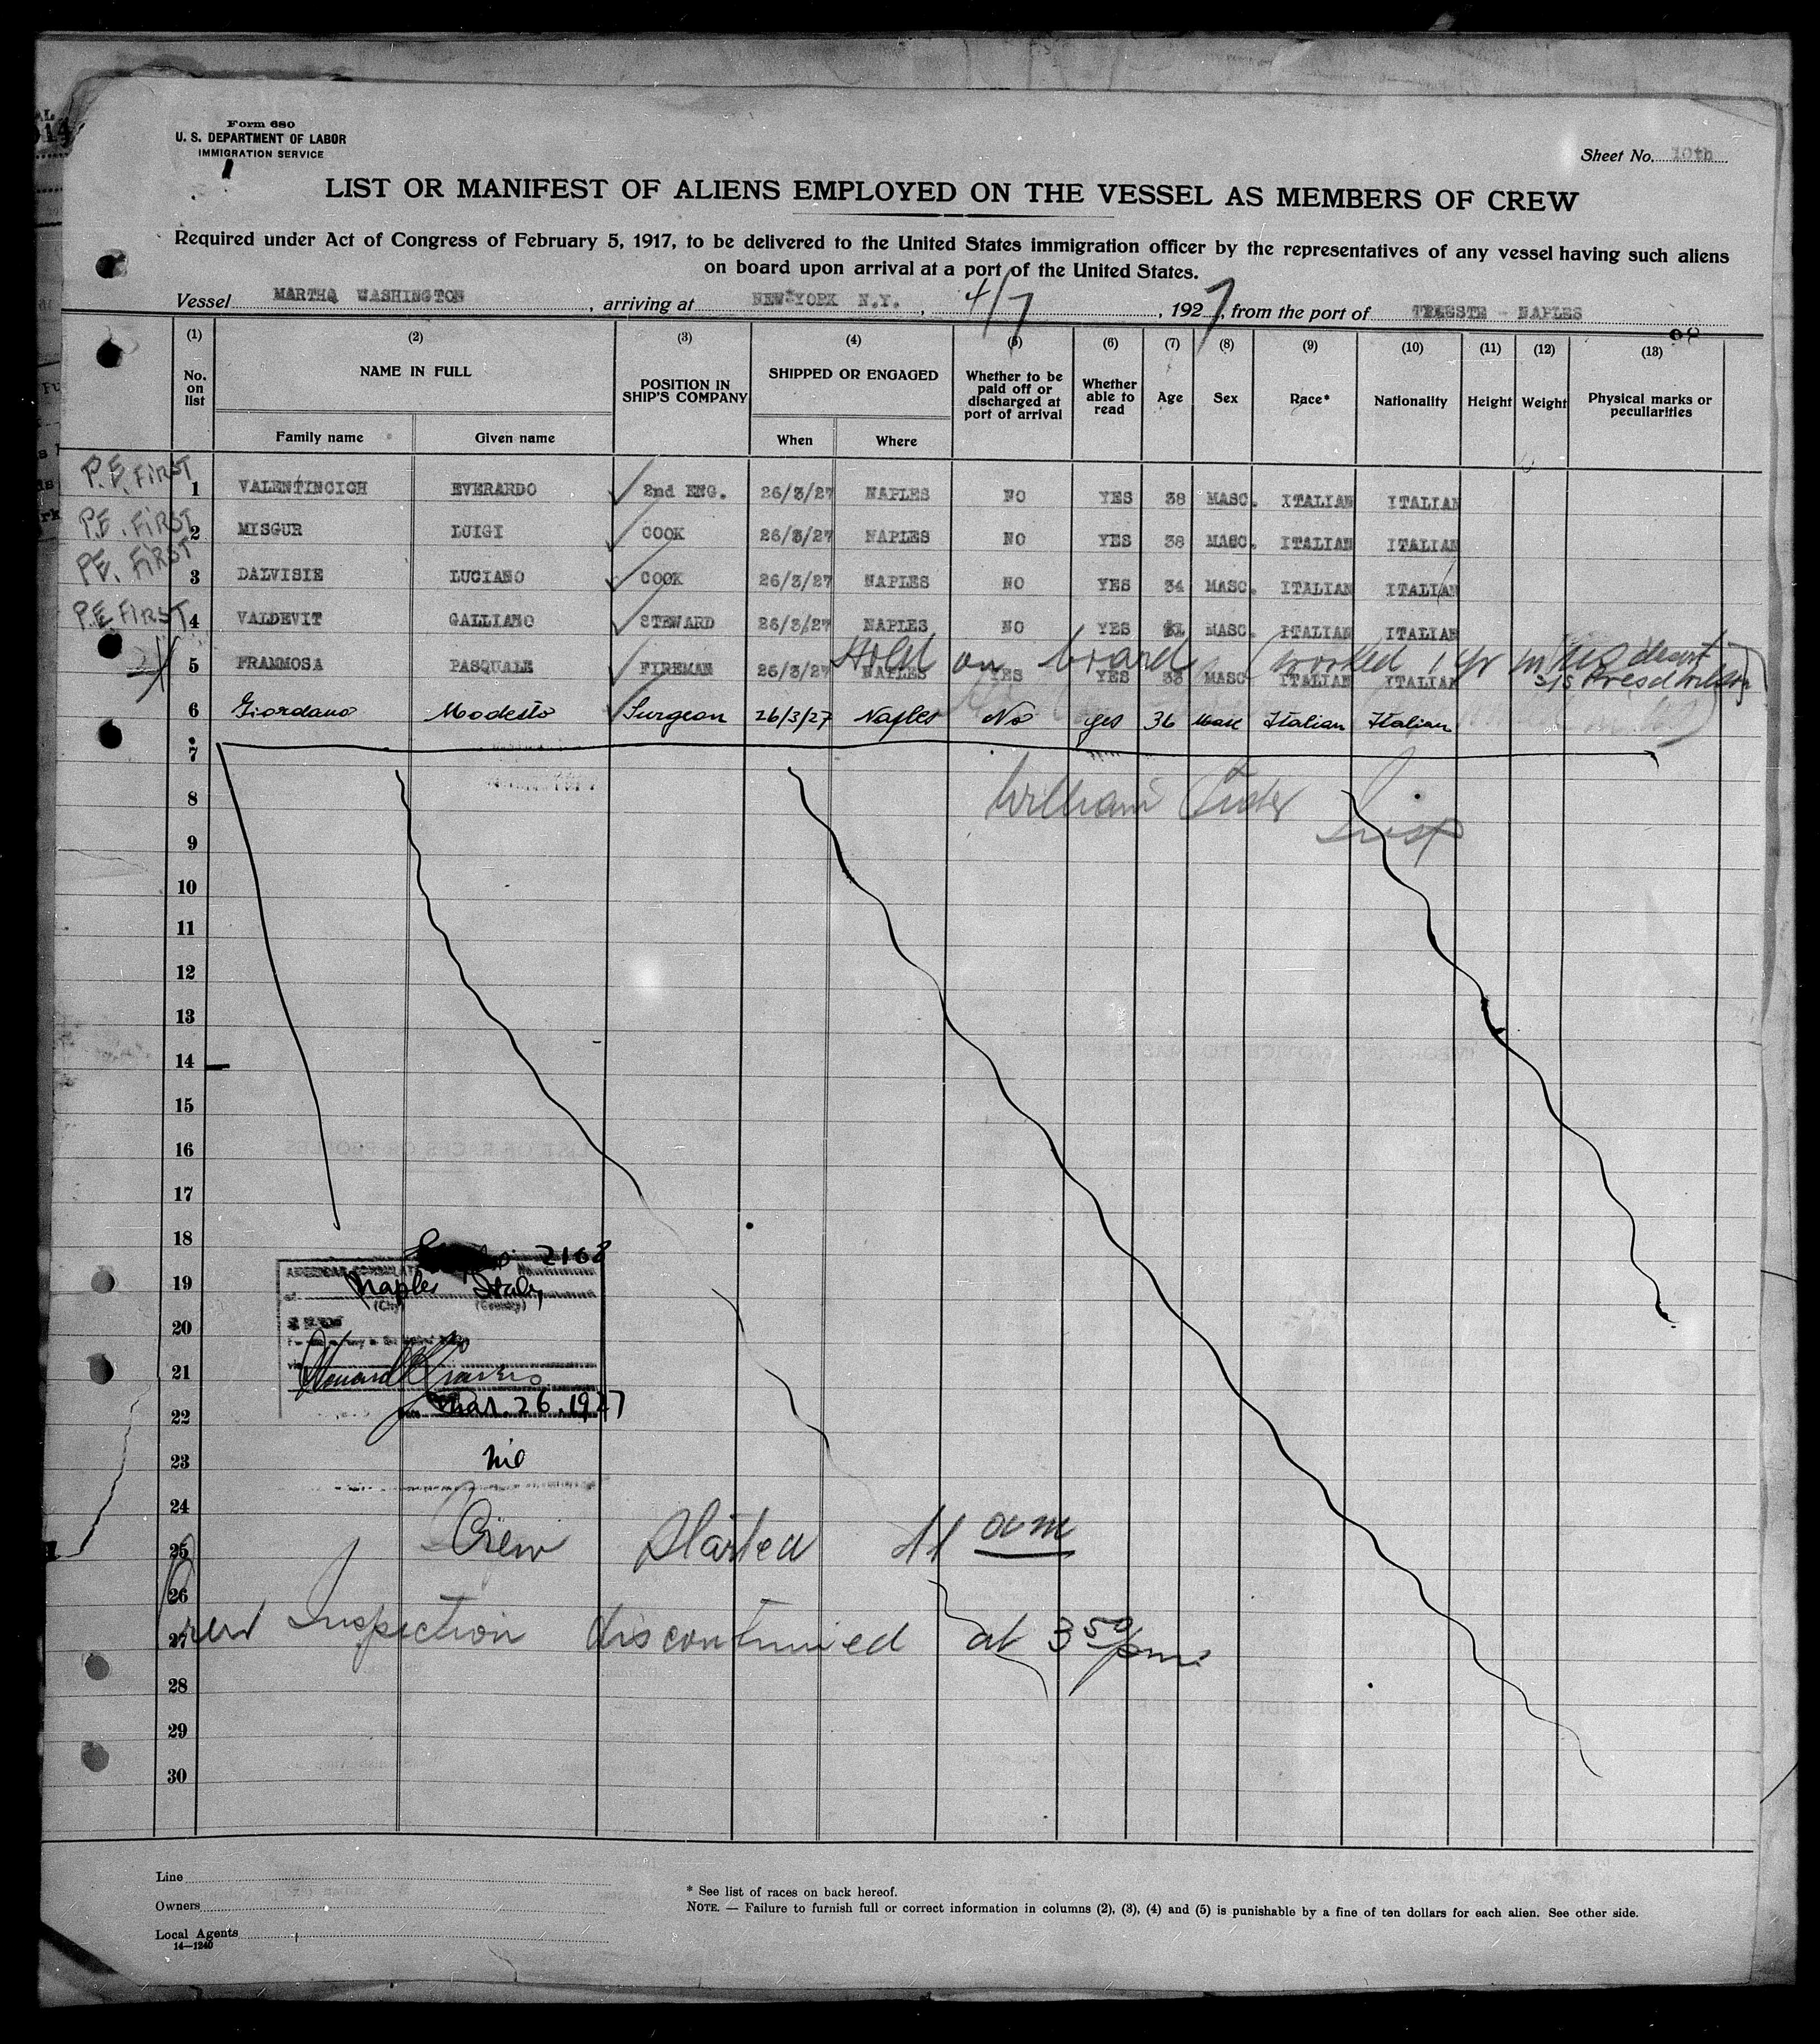 Form 680
U. S. DEPARTMENT OF LABOR
IMMIGRATION SERVICE
Sheet No. 10th
LIST OR MANIFEST OF ALIENS EMPLOYED ON THE VESSEL AS MEMBERS OF CREW
Required under Act of Congress of February 5, 1917, to be delivered to the United States immigration officer by the representatives of any vessel having such aliens
on board upon arrival at a port of the United States.
Vessel MARTHA WASHINGTON, arriving at NEW YORK N.Y., 4/7, 1927, from the port of TRIESTE - NAPLES
(1) (2) (3) (4) (5) (6) (7) (8) (9) (10) (11) (12) (13)
No. on list NAME IN FULL POSITION IN SHIP'S COMPANY SHIPPED OR ENGAGED Whether to be paid off or discharged at port of arrival Whether able to read Age Sex Race* Nationality Height Weight Physical marks or peculiarities
Family name Given name When Where
P.E. FIRST 1 VALENTINCICH EVERARDO 2nd ENG. 26/3/27 NAPLES NO YES 38 MASC. ITALIAN ITALIAN
P.E. FIRST 2 MISGUR LUIGI COOK 26/3/27 NAPLES NO YES 38 MASC. ITALIAN ITALIAN
P.E. FIRST 3 DALVISIE LUCIANO COOK 26/3/27 NAPLES NO YES 34 MASC. ITALIAN ITALIAN
P.E. FIRST 4 VALDEVIT GALLIANO STEWARD 26/3/27 NAPLES NO YES MASC. ITALIAN ITALIAN
Hold on board (worked 1 yr in
5 FRAMMOSA PASQUALE FIREMAN 26/3/27 NAPLES YES YES 33 MASC ITALIAN ITALIAN S/S Presd Wilson)
6 Giordano Modesto Surgeon 26/3/27 Naples No yes 36 Masc Italian Italian
7
8 William Insp
9
10
11
12
13
14
15
16
17
18 2168
19 AMERICAN CONSULATE Naples Italy
(City) (Country)
20
21
Mar. 26. 1927
22
23 nil
24
25 Crew Started 11 am
26
27 Crew Inspection discontinued at 3 50 pm.
28
29
30
Line
Owners
Local Agents
14—1240
* See list of races on back hereof.
NOTE. — Failure to furnish full or correct information in columns (2), (3), (4) and (5) is punishable by a fine of ten dollars for each alien. See other side.